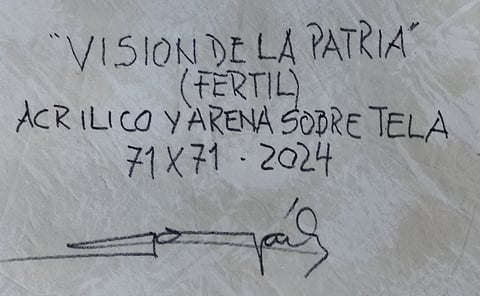 "VISION DE LA PATRIA"
(FERTIL)
ACRILICO Y ARENA SOBRE TELA
71 X 71 · 2024